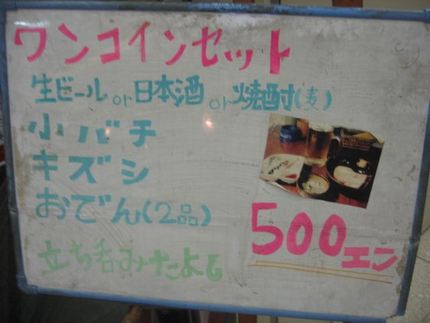 ワンコインセット
生ビール or 日本酒 or 焼酎(麦)
小バチ
キズシ
おでん(2品)
500エン
立ち呑みたよし